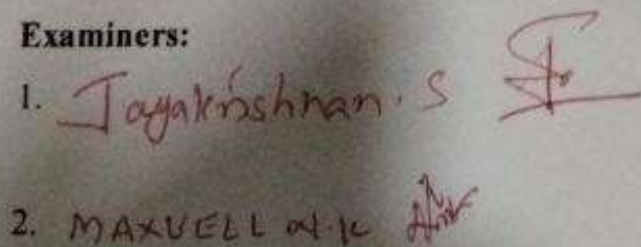 Examiners:
1. Jayakrishnan. S
2. MAXUELL